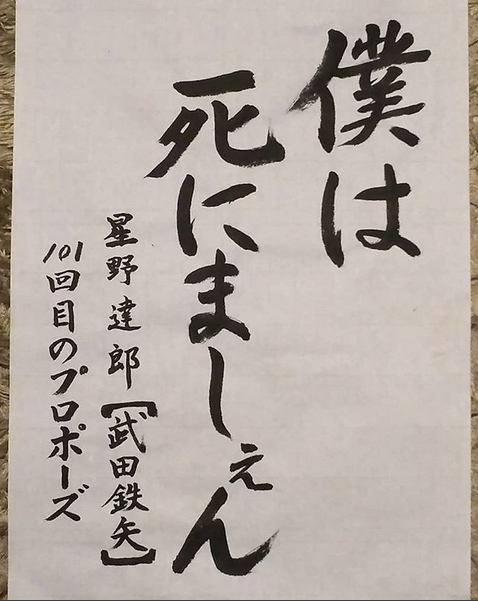 僕は
死にましぇん
星野達郎【武田鉄矢】
101回目のプロポーズ